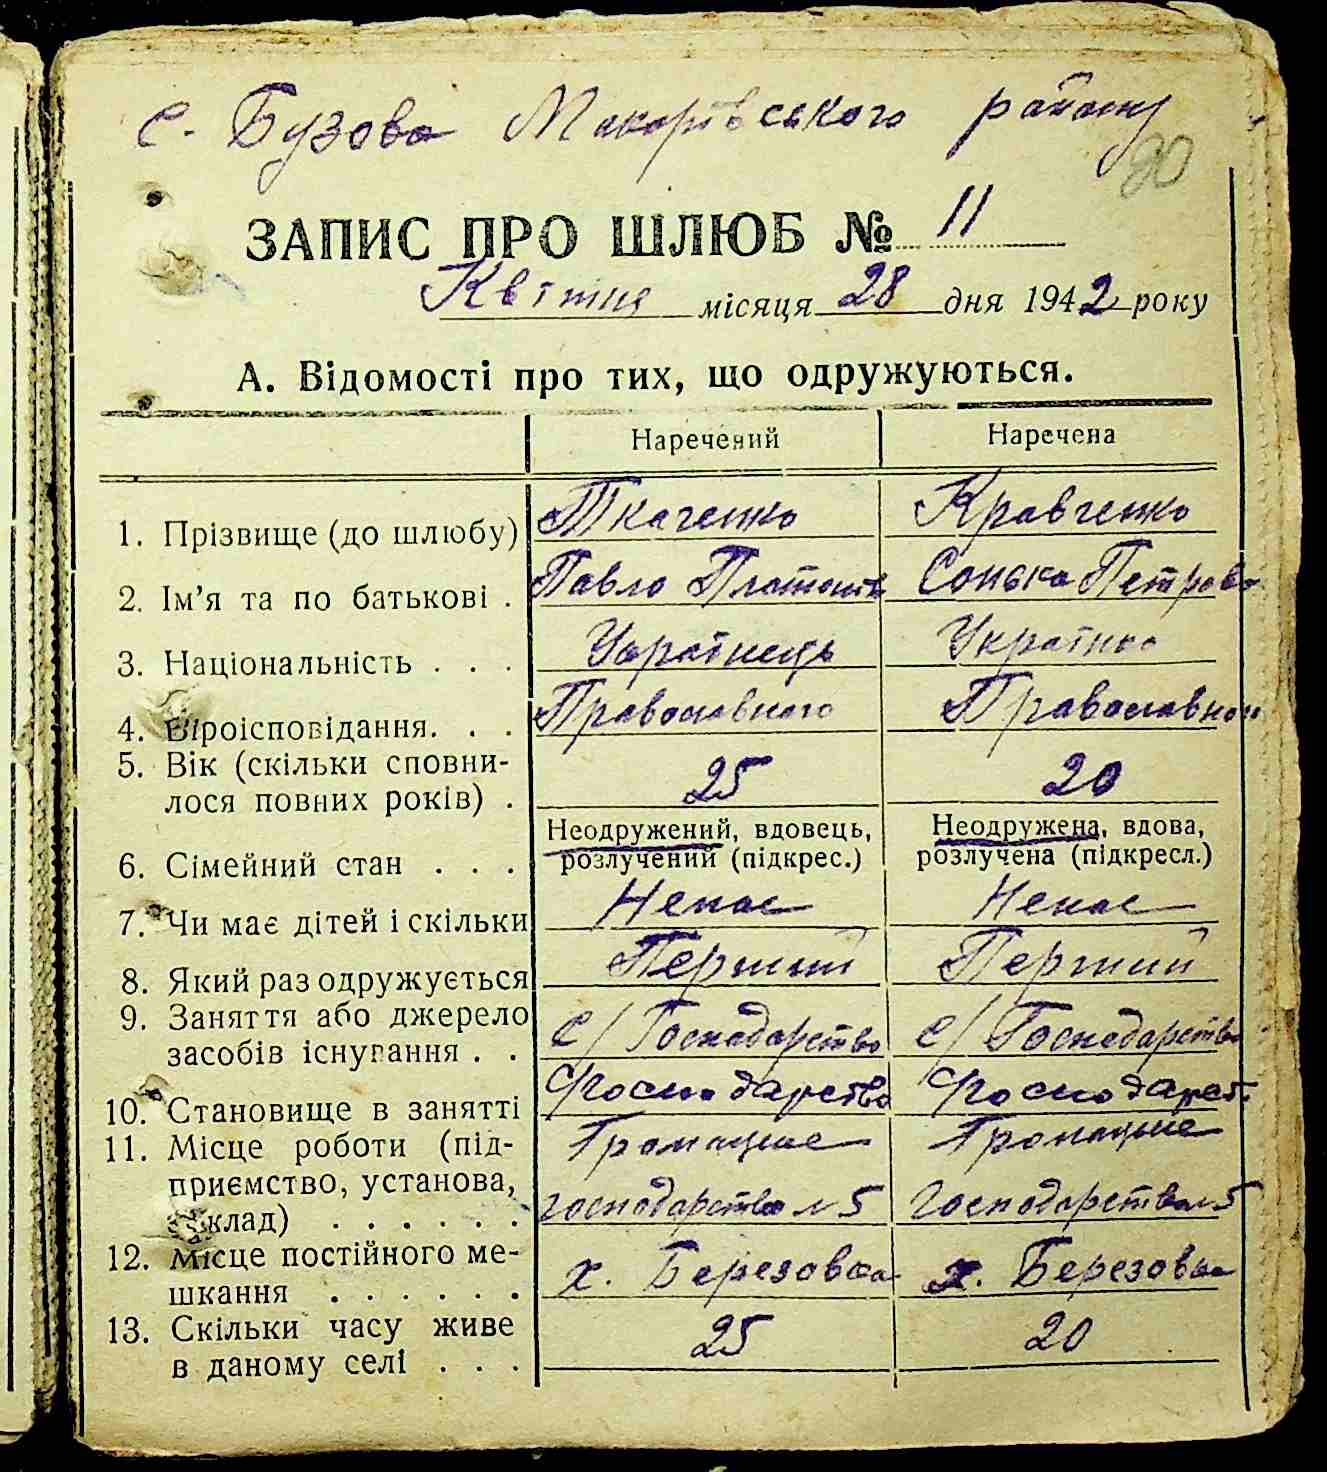 с. Бузова Макарівського району
20
ЗАПИС ПРО ШЛЮБ № 11
Квітня місяця 28 дня 1942 року
А. Відомості про тих, що одружуються.
Наречений Наречена
1. Прізвище (до шлюбу) Ткаченко Кравченко
2. Ім'я та по батькові . Павло Платонів Сонька Петрова
3. Національність . . . Українець Українка
4. Віроісповідання. . . Православного Православної
5. Вік (скільки сповни-
лося повних років) . 25 20
Неодружений, вдовець, Неодружена, вдова,
6. Сімейний стан . . . розлучений (підкрес.) розлучена (підкресл.)
7. Чи має дітей і скільки Немає Немає
8. Який раз одружується Перший Перший
9. Заняття або джерело
засобів існування . . С/Господарство С/Господарство
10. Становище в занятті Господарство Господарст.
11. Місце роботи (під- Громадське Громадське
приємство, установа,
заклад) . . . . . . господарство №5 господарство №5
12. Місце постійного ме-
шкання . . . . . . х. Березовка х. Березовка
13. Скільки часу живе
в даному селі . . . 25 20